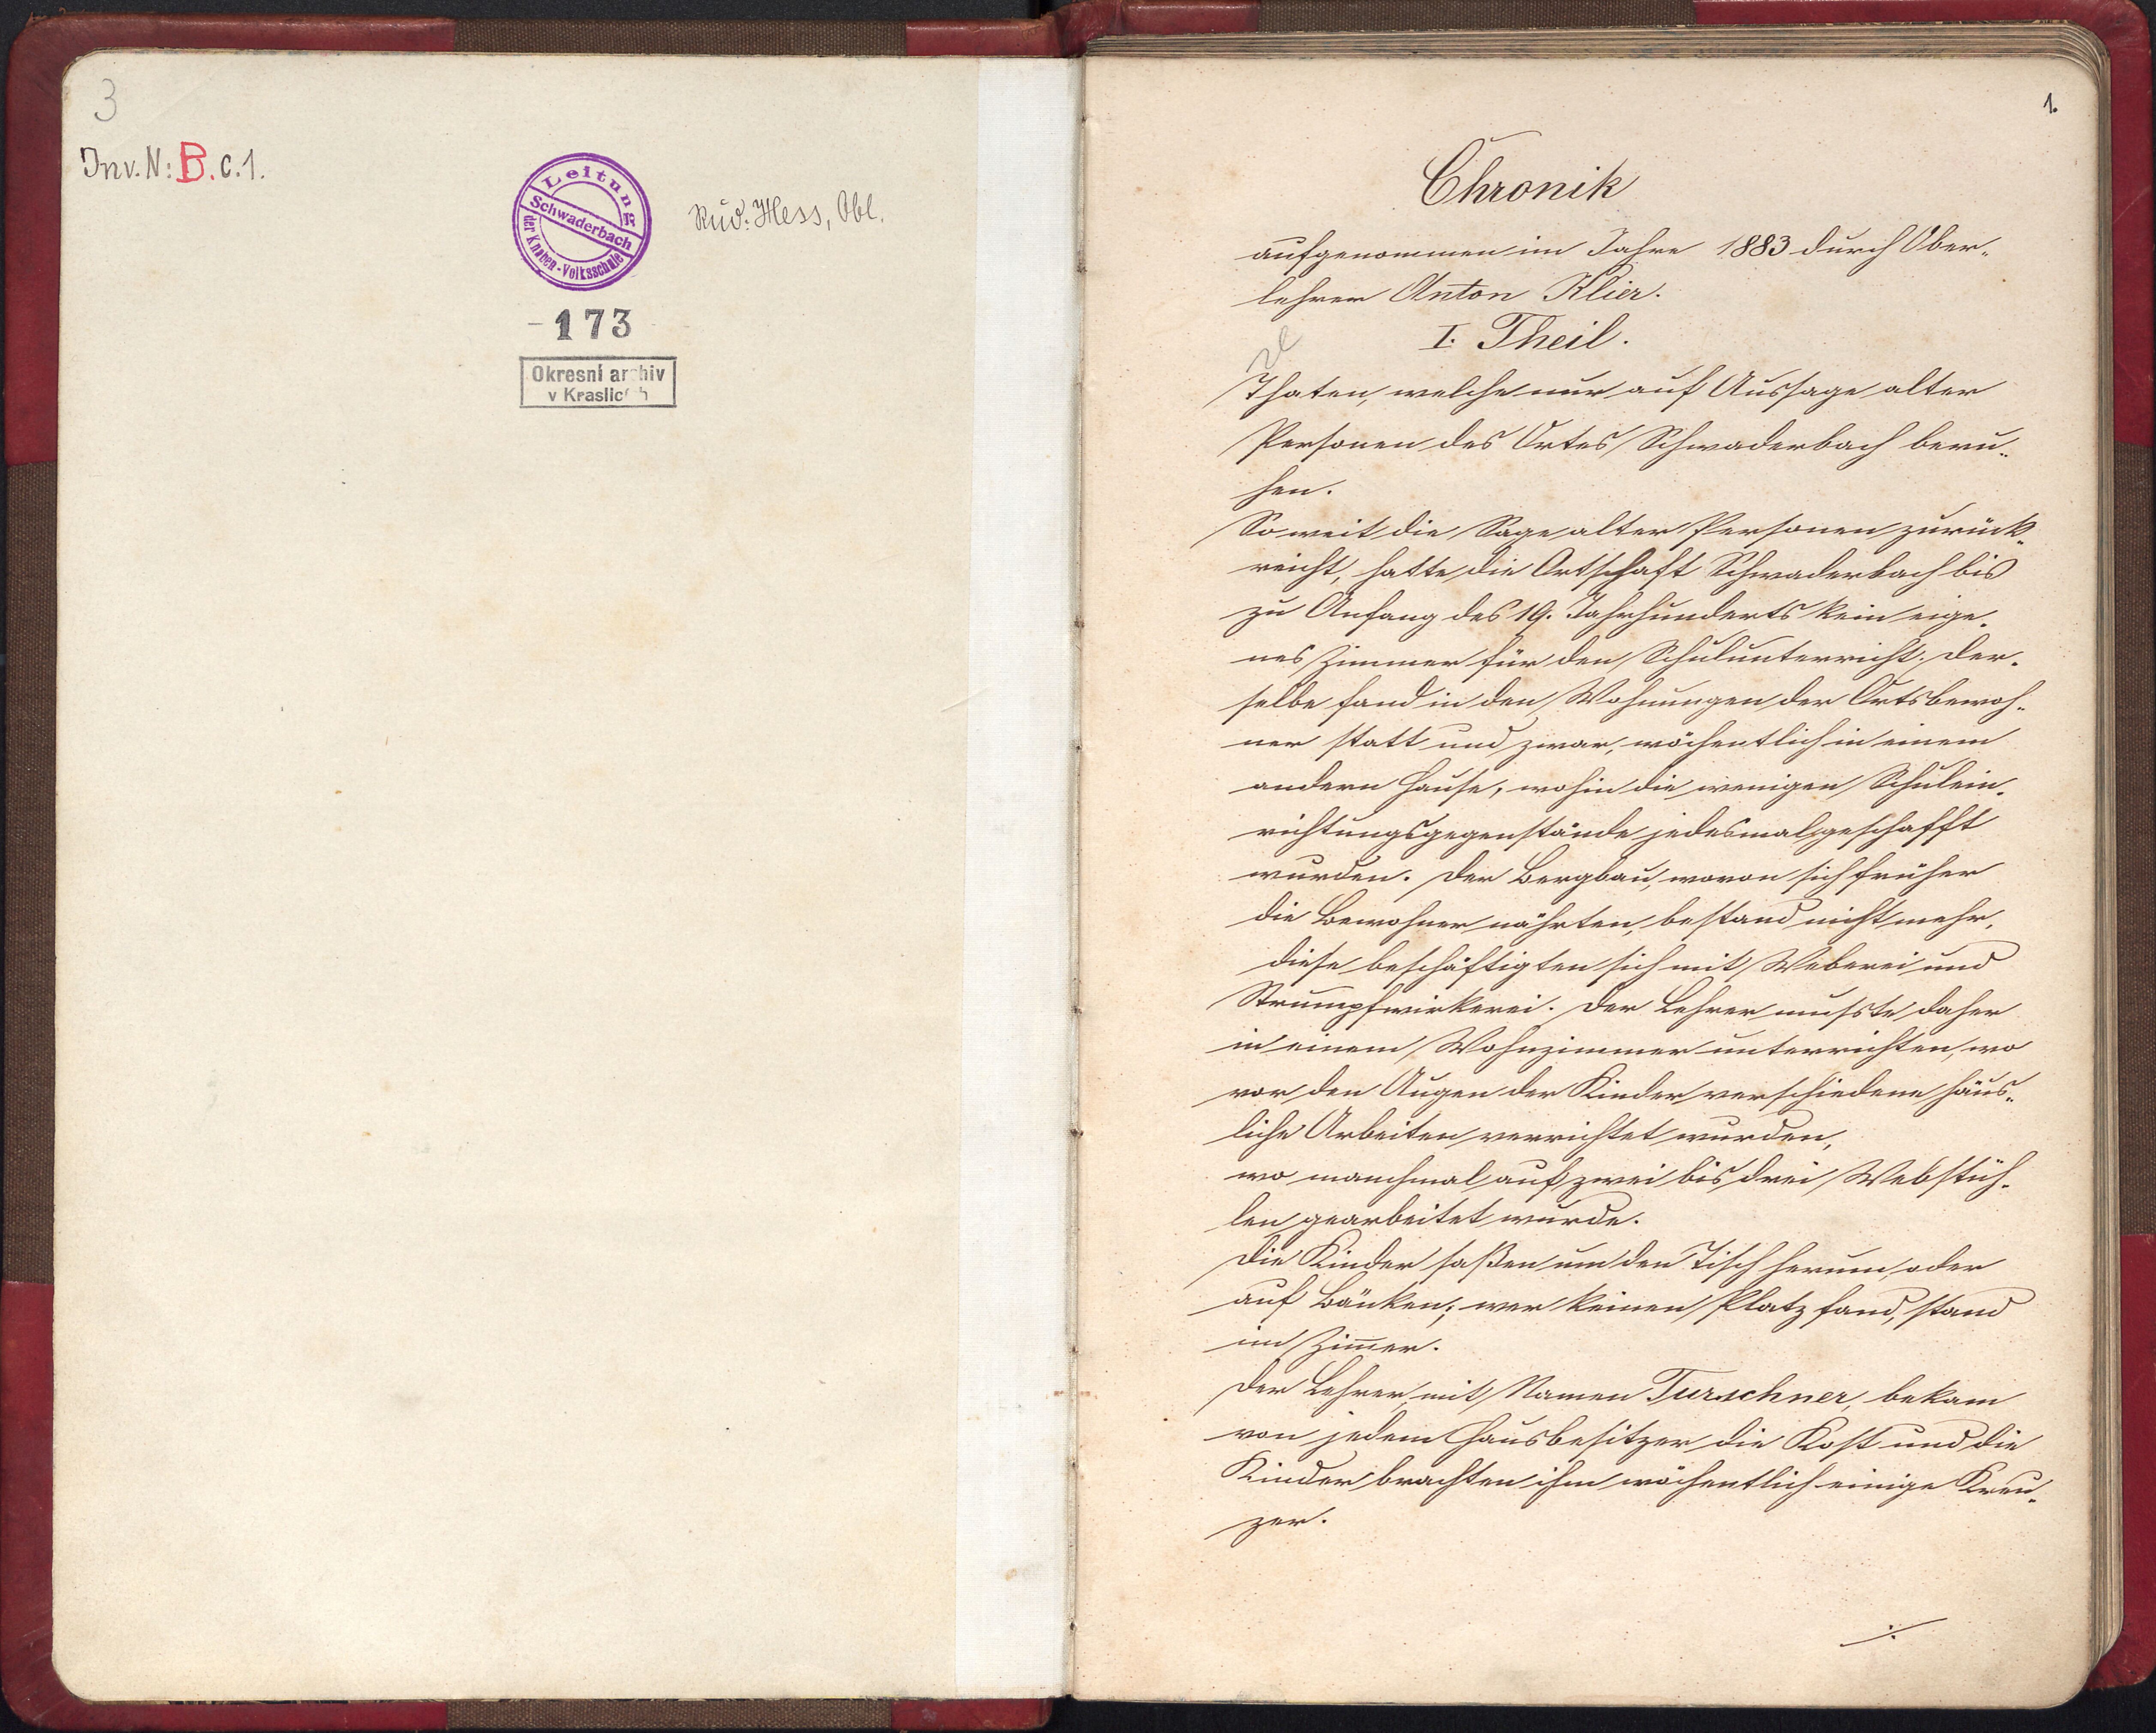 3
Inv. N: B. c. 1.
Leitung
Schwaderbach
der Knaben-Volksschule
Rud. Hess, Obl.
173
Okresní archiv
v Kraslicích
1.
Chronik
aufgenommen im Jahre 1883 durch Ober-
lehrer Anton Klier.
I. Theil.
Thaten, welche nur auf Aussage alter
Personen des Ortes Schwaderbach beru-
hen.
So weit die Sage alter Personen zurück-
reicht, hatte die Ortschaft Schwaderbach bis
zu Anfang des 19. Jahrhunderts kein eige-
nes Zimmer für den Schulunterricht. Der-
selbe fand in den Wohnungen der Ortsbewoh-
ner statt und zwar, wöchentlich in einem
andern Hause, wohin die wenigen Schulein-
richtungsgegenstände jedesmal geschafft
wurden. Der Bergbau, wovon sich früher
die Bewohner nährten, bestand nicht mehr,
diese beschäftigten sich mit Weberei und
Strumpfwirkerei. Der Lehrer musste daher
in einem Wohnzimmer unterrichten, wo
vor den Augen der Kinder verschiedene häus-
liche Arbeiten verrichtet wurden,
wo manchmal auf zwei bis drei Webstüh-
len gearbeitet wurde.
Die Kinder saßen um den Tisch herum, oder
auf Bänken; wer keinen Platz fand, stand
im Zim̄er.
Der Lehrer, mit Namen Turschner, bekam
von jedem Hausbesitzer die Kost und die
Kinder brachten ihm wöchentlich einige Kreu-
zer.